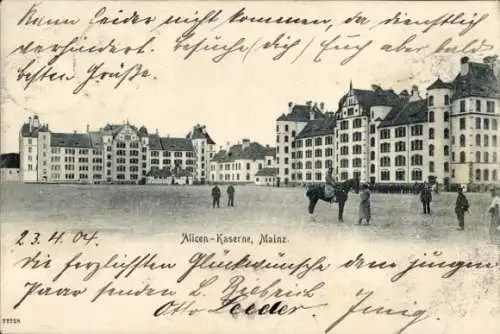 Kann leider nicht kommen, da dienstlich
verhindert. besuche (dich) Euch aber bald
besten Grüße.
Alicen-Kaserne, Mainz.
23.4.04.
die herzlichsten Glückwünsche dem jungen
Paar senden
Otto